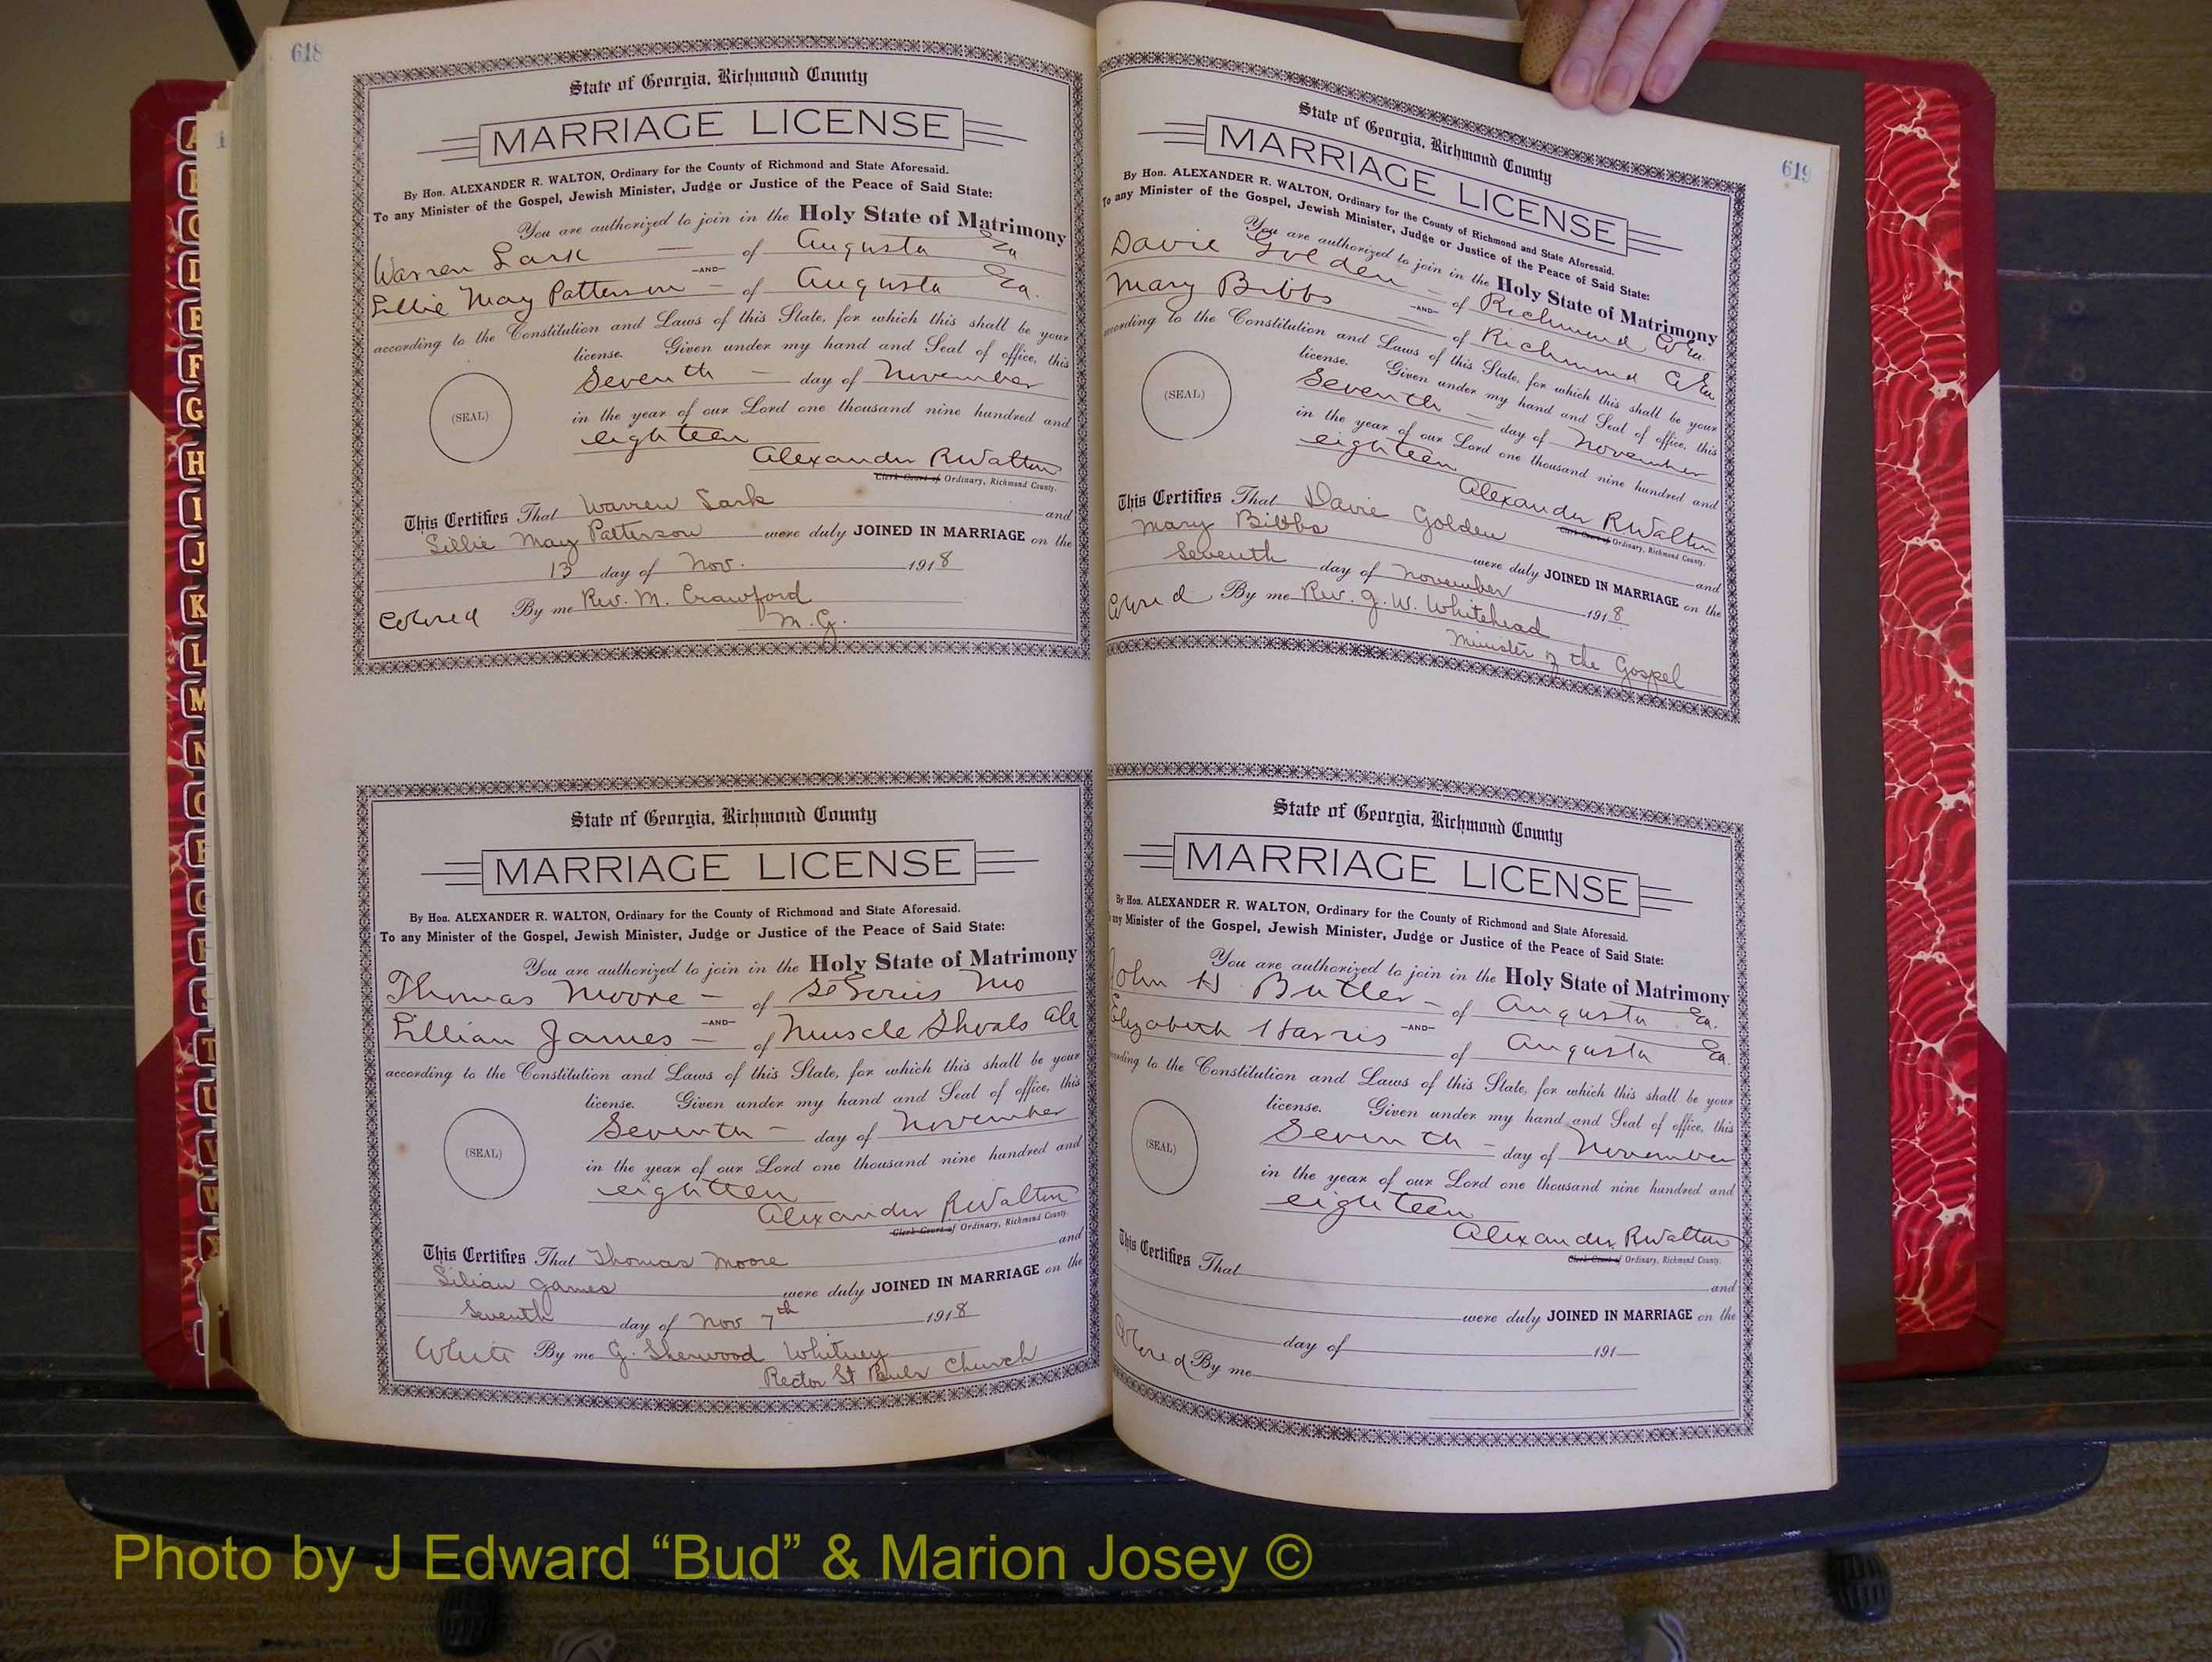 618
State of Georgia, Richmond County
MARRIAGE LICENSE
By Hon. ALEXANDER R. WALTON, Ordinary for the County of Richmond and State Aforesaid.
To any Minister of the Gospel, Jewish Minister, Judge or Justice of the Peace of Said State:
You are authorized to join in the Holy State of Matrimony
Warren Lark — of Augusta Ga
—AND—
Lillie May Patterson — of Augusta Ga.
according to the Constitution and Laws of this State, for which this shall be your
license. Given under my hand and Seal of office, this
Seventh — day of November
(SEAL)
in the year of our Lord one thousand nine hundred and
eighteen
Alexander R Walton
Clerk Court of Ordinary, Richmond County.
This Certifies That Warren Lark and
Lillie May Patterson were duly JOINED IN MARRIAGE on the
13 day of Nov. 1918
Colored By me Rev. M. Crawford
M. G.
State of Georgia, Richmond County
MARRIAGE LICENSE
By Hon. ALEXANDER R. WALTON, Ordinary for the County of Richmond and State Aforesaid.
To any Minister of the Gospel, Jewish Minister, Judge or Justice of the Peace of Said State:
You are authorized to join in the Holy State of Matrimony
Thomas Moore — of Mo
—AND—
Lillian James — of Muscle Shoals Ala
according to the Constitution and Laws of this State, for which this shall be your
license. Given under my hand and Seal of office, this
Seventh — day of November
(SEAL)
in the year of our Lord one thousand nine hundred and
eighteen
Alexander R Walton
Clerk Court of Ordinary, Richmond County.
This Certifies That Thomas Moore and
Lilian James were duly JOINED IN MARRIAGE on the
Seventh day of Nov 7th 1918
White By me G. Sherwood Whitney
Rector St Pauls Church
619
State of Georgia, Richmond County
MARRIAGE LICENSE
By Hon. ALEXANDER R. WALTON, Ordinary for the County of Richmond and State Aforesaid.
To any Minister of the Gospel, Jewish Minister, Judge or Justice of the Peace of Said State:
You are authorized to join in the Holy State of Matrimony
Davie Golden — of Richmond Co Ga.
—AND—
Mary Bibbs — of Richmond Co Ga
according to the Constitution and Laws of this State, for which this shall be your
license. Given under my hand and Seal of office, this
Seventh — day of November
(SEAL)
in the year of our Lord one thousand nine hundred and
eighteen
Alexander R Walton
Clerk Court of Ordinary, Richmond County.
This Certifies That Davie Golden and
Mary Bibbs were duly JOINED IN MARRIAGE on the
Seventh day of November 1918
Colored By me Rev. G. W. Whitehead
Minister of the Gospel
State of Georgia, Richmond County
MARRIAGE LICENSE
By Hon. ALEXANDER R. WALTON, Ordinary for the County of Richmond and State Aforesaid.
any Minister of the Gospel, Jewish Minister, Judge or Justice of the Peace of Said State:
You are authorized to join in the Holy State of Matrimony
John H Butler — of Augusta Ga.
—AND—
Elizabeth Harris of Augusta Ga.
according to the Constitution and Laws of this State, for which this shall be your
license. Given under my hand and Seal of office, this
Seventh — day of November
(SEAL)
in the year of our Lord one thousand nine hundred and
eighteen
Alexander R Walton
Clerk Court of Ordinary, Richmond County.
This Certifies That and
were duly JOINED IN MARRIAGE on the
day of 191
Colored By me
A
F
G
H
I
J
K
L
M
N
Photo by J Edward “Bud” & Marion Josey ©